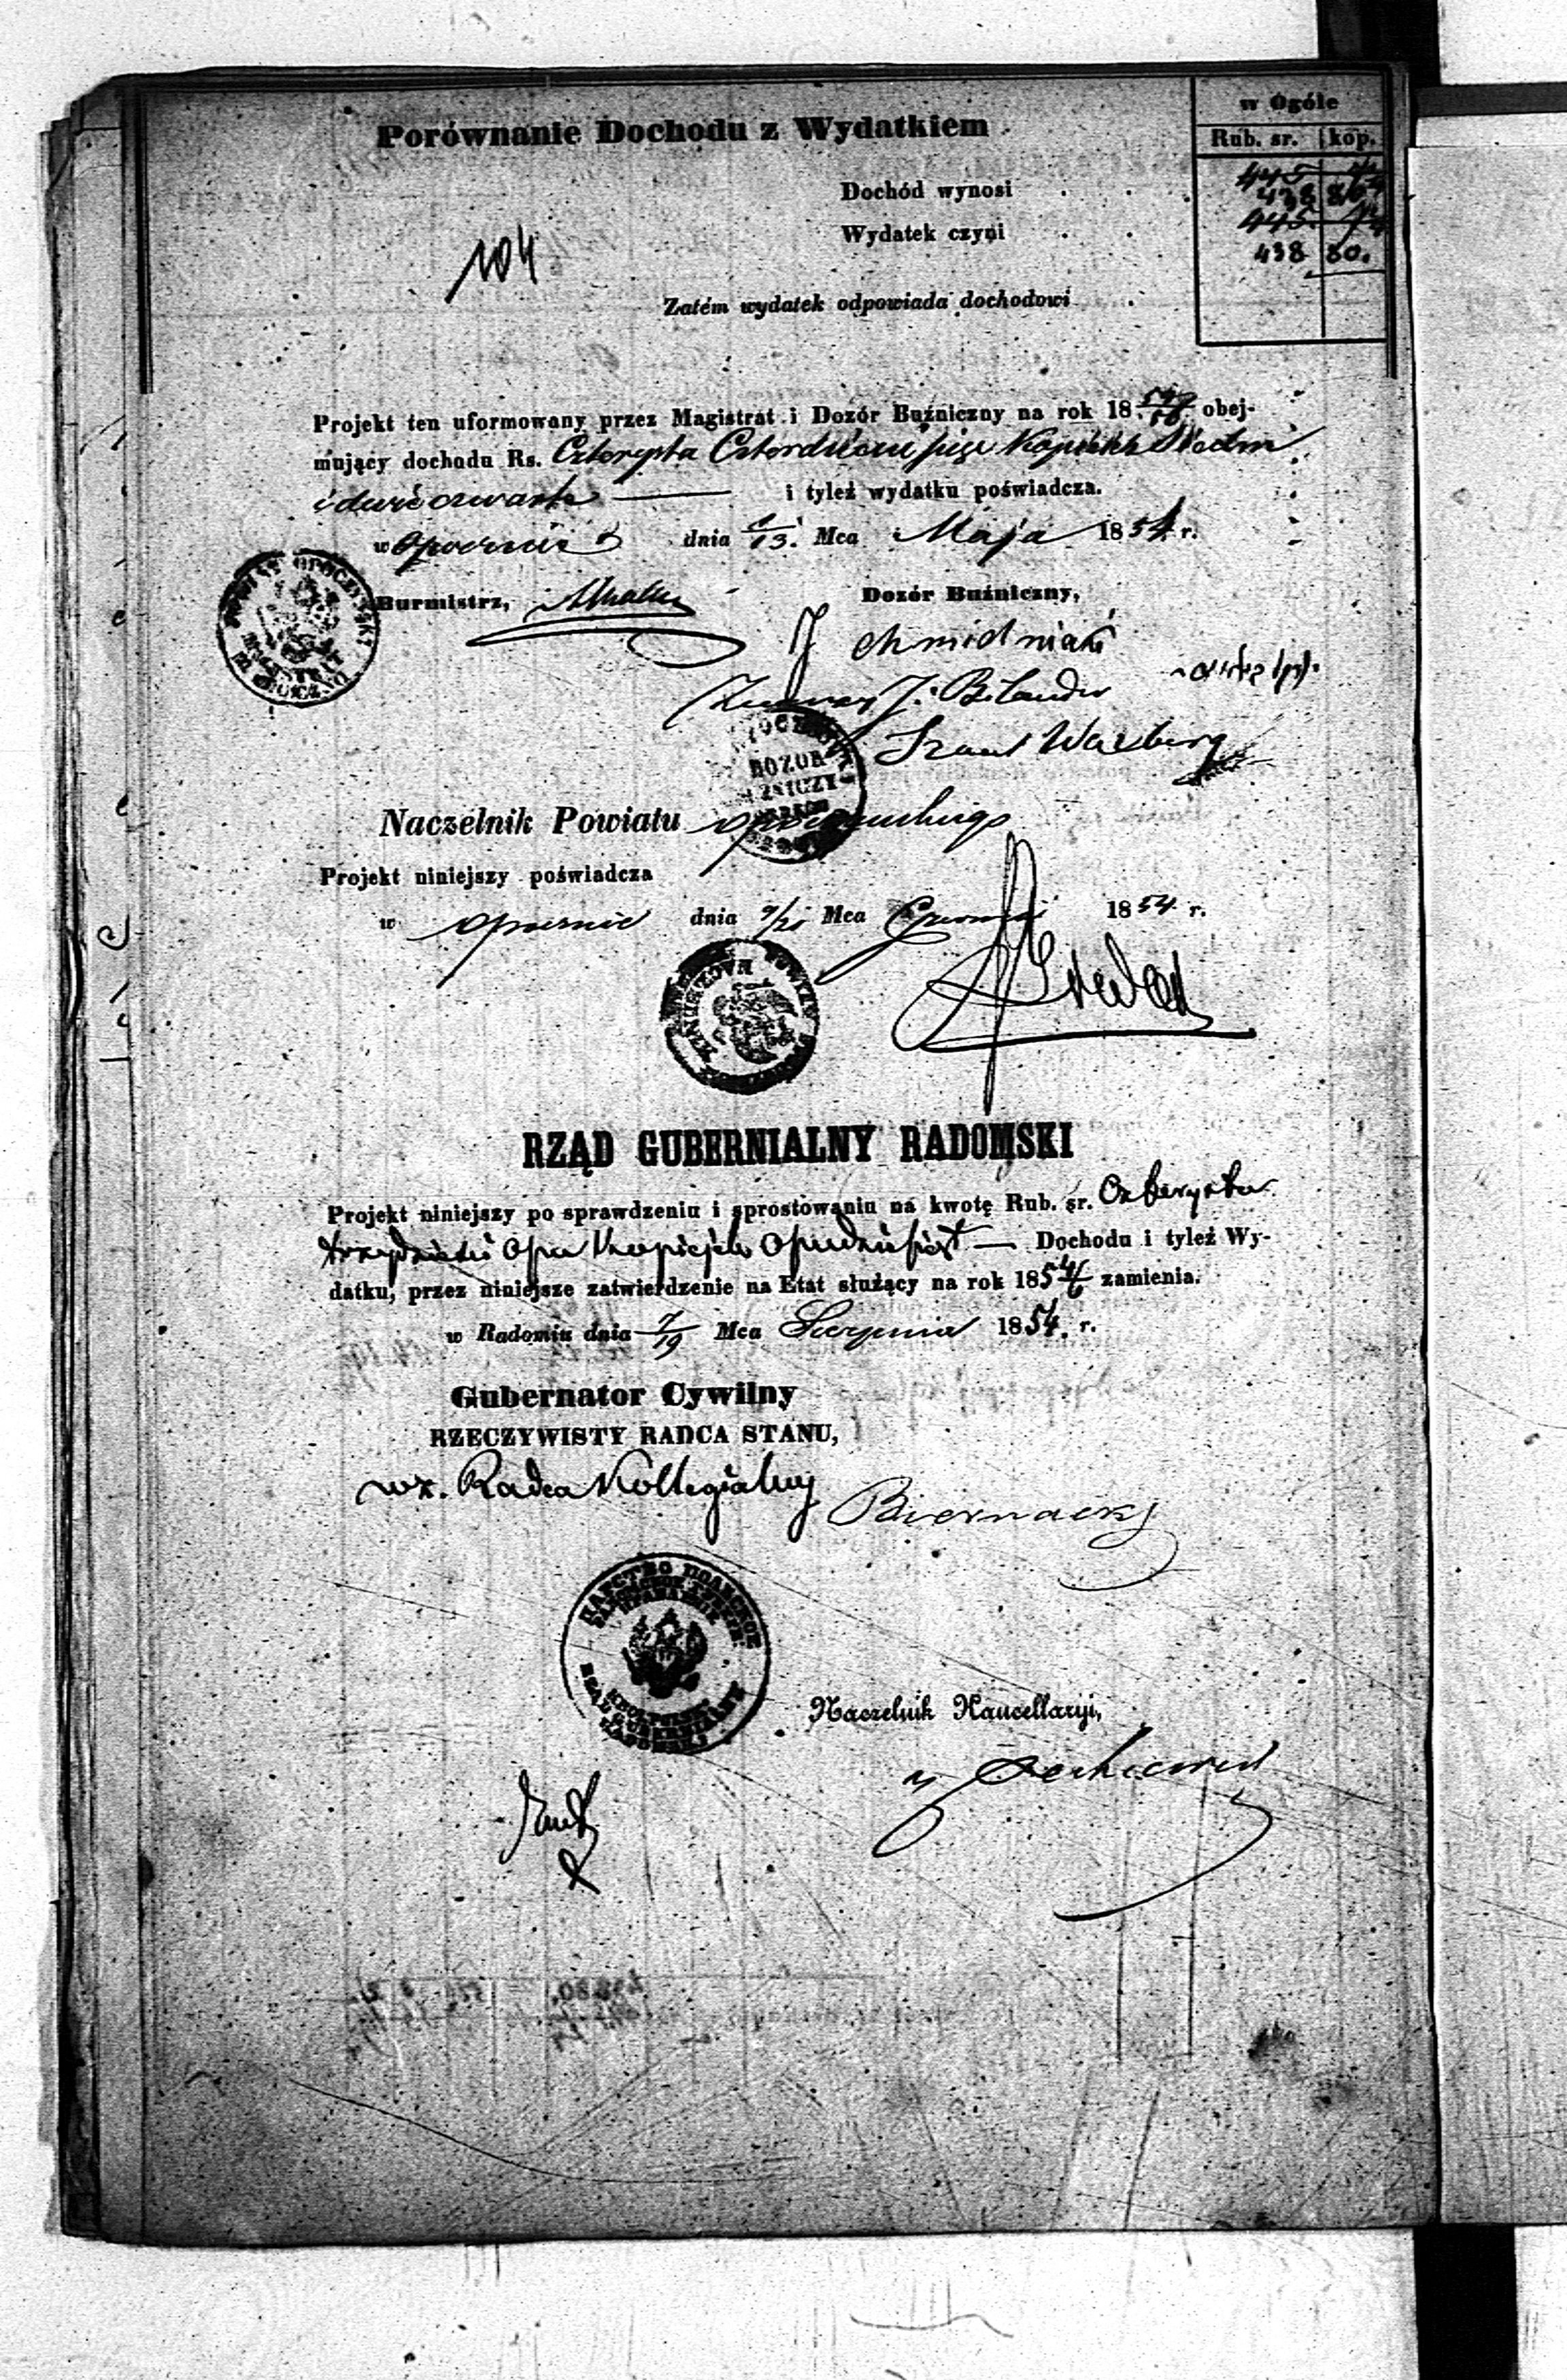 w Ogóle
Porównanie Dochodu z Wydatkiem
Rub. sr. kop.
Dochód wynosi
438 80
Wydatek czyni
445
438 80.
104
Zatém wydatek odpowiada dochodowi
Projekt ten uformowany przez Magistrat i Dozór Buźniczny na rok 18 obej-
mujący dochodu Rs. Czterysta Czterdzieści pięć Kopiejek Siedm
i dwie czwarte — i tyleż wydatku poświadcza.
w Opocznie dnia 1/13. Mca Maja 1854 r.
Burmistrz,
Dozór Buźniczny,
J Chmielnicki
J. Bilander
Waxberg
Naczelnik Powiatu Opoczyńskiego
Projekt niniejszy poświadcza
w Opocznie dnia 9/21 Mca Czerwca 1854 r.
RZĄD GUBERNIALNY RADOMSKI
Projekt niniejszy po sprawdzeniu i sprostowaniu na kwotę Rub. sr. Czterysta
trzydzieści Ośm Kopiejek Ośmdziesiąt — Dochodu i tyleż Wy-
datku, przez niniejsze zatwierdzenie na Etat służący na rok 1854/6 zamienia.
w Radomiu dnia 7/19 Mca Sierpnia 1854. r.
Gubernator Cywilny
RZECZYWISTY RADCA STANU,
wz. Radca Kollegialny Biernacki
ЦАРСТВО ПОЛЬСКОЕ
RZĄD GUBERNIALNY
Naczelnik Kancellaryi,